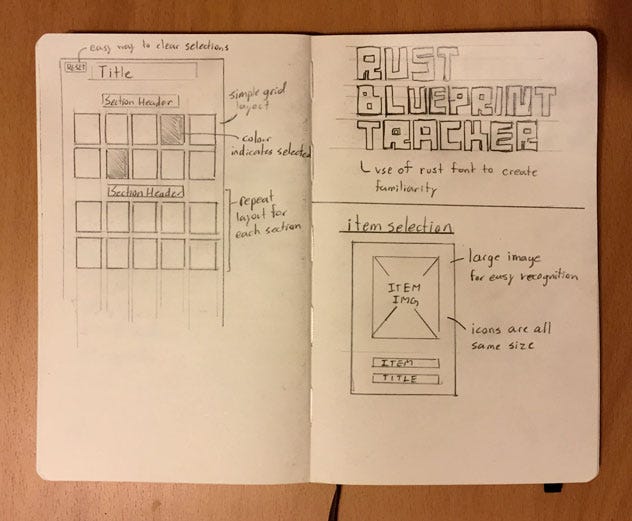 easy way to clear selections
RESET
Title
Section Header
simple grid
layout
colour
indicates selected
Section Header
repeat
layout for
each section
RUST
BLUEPRINT
TRACKER
use of rust font to create
familiarity
item selection
large image
for easy recognition
ITEM
IMG
icons are all
same size
ITEM
TITLE